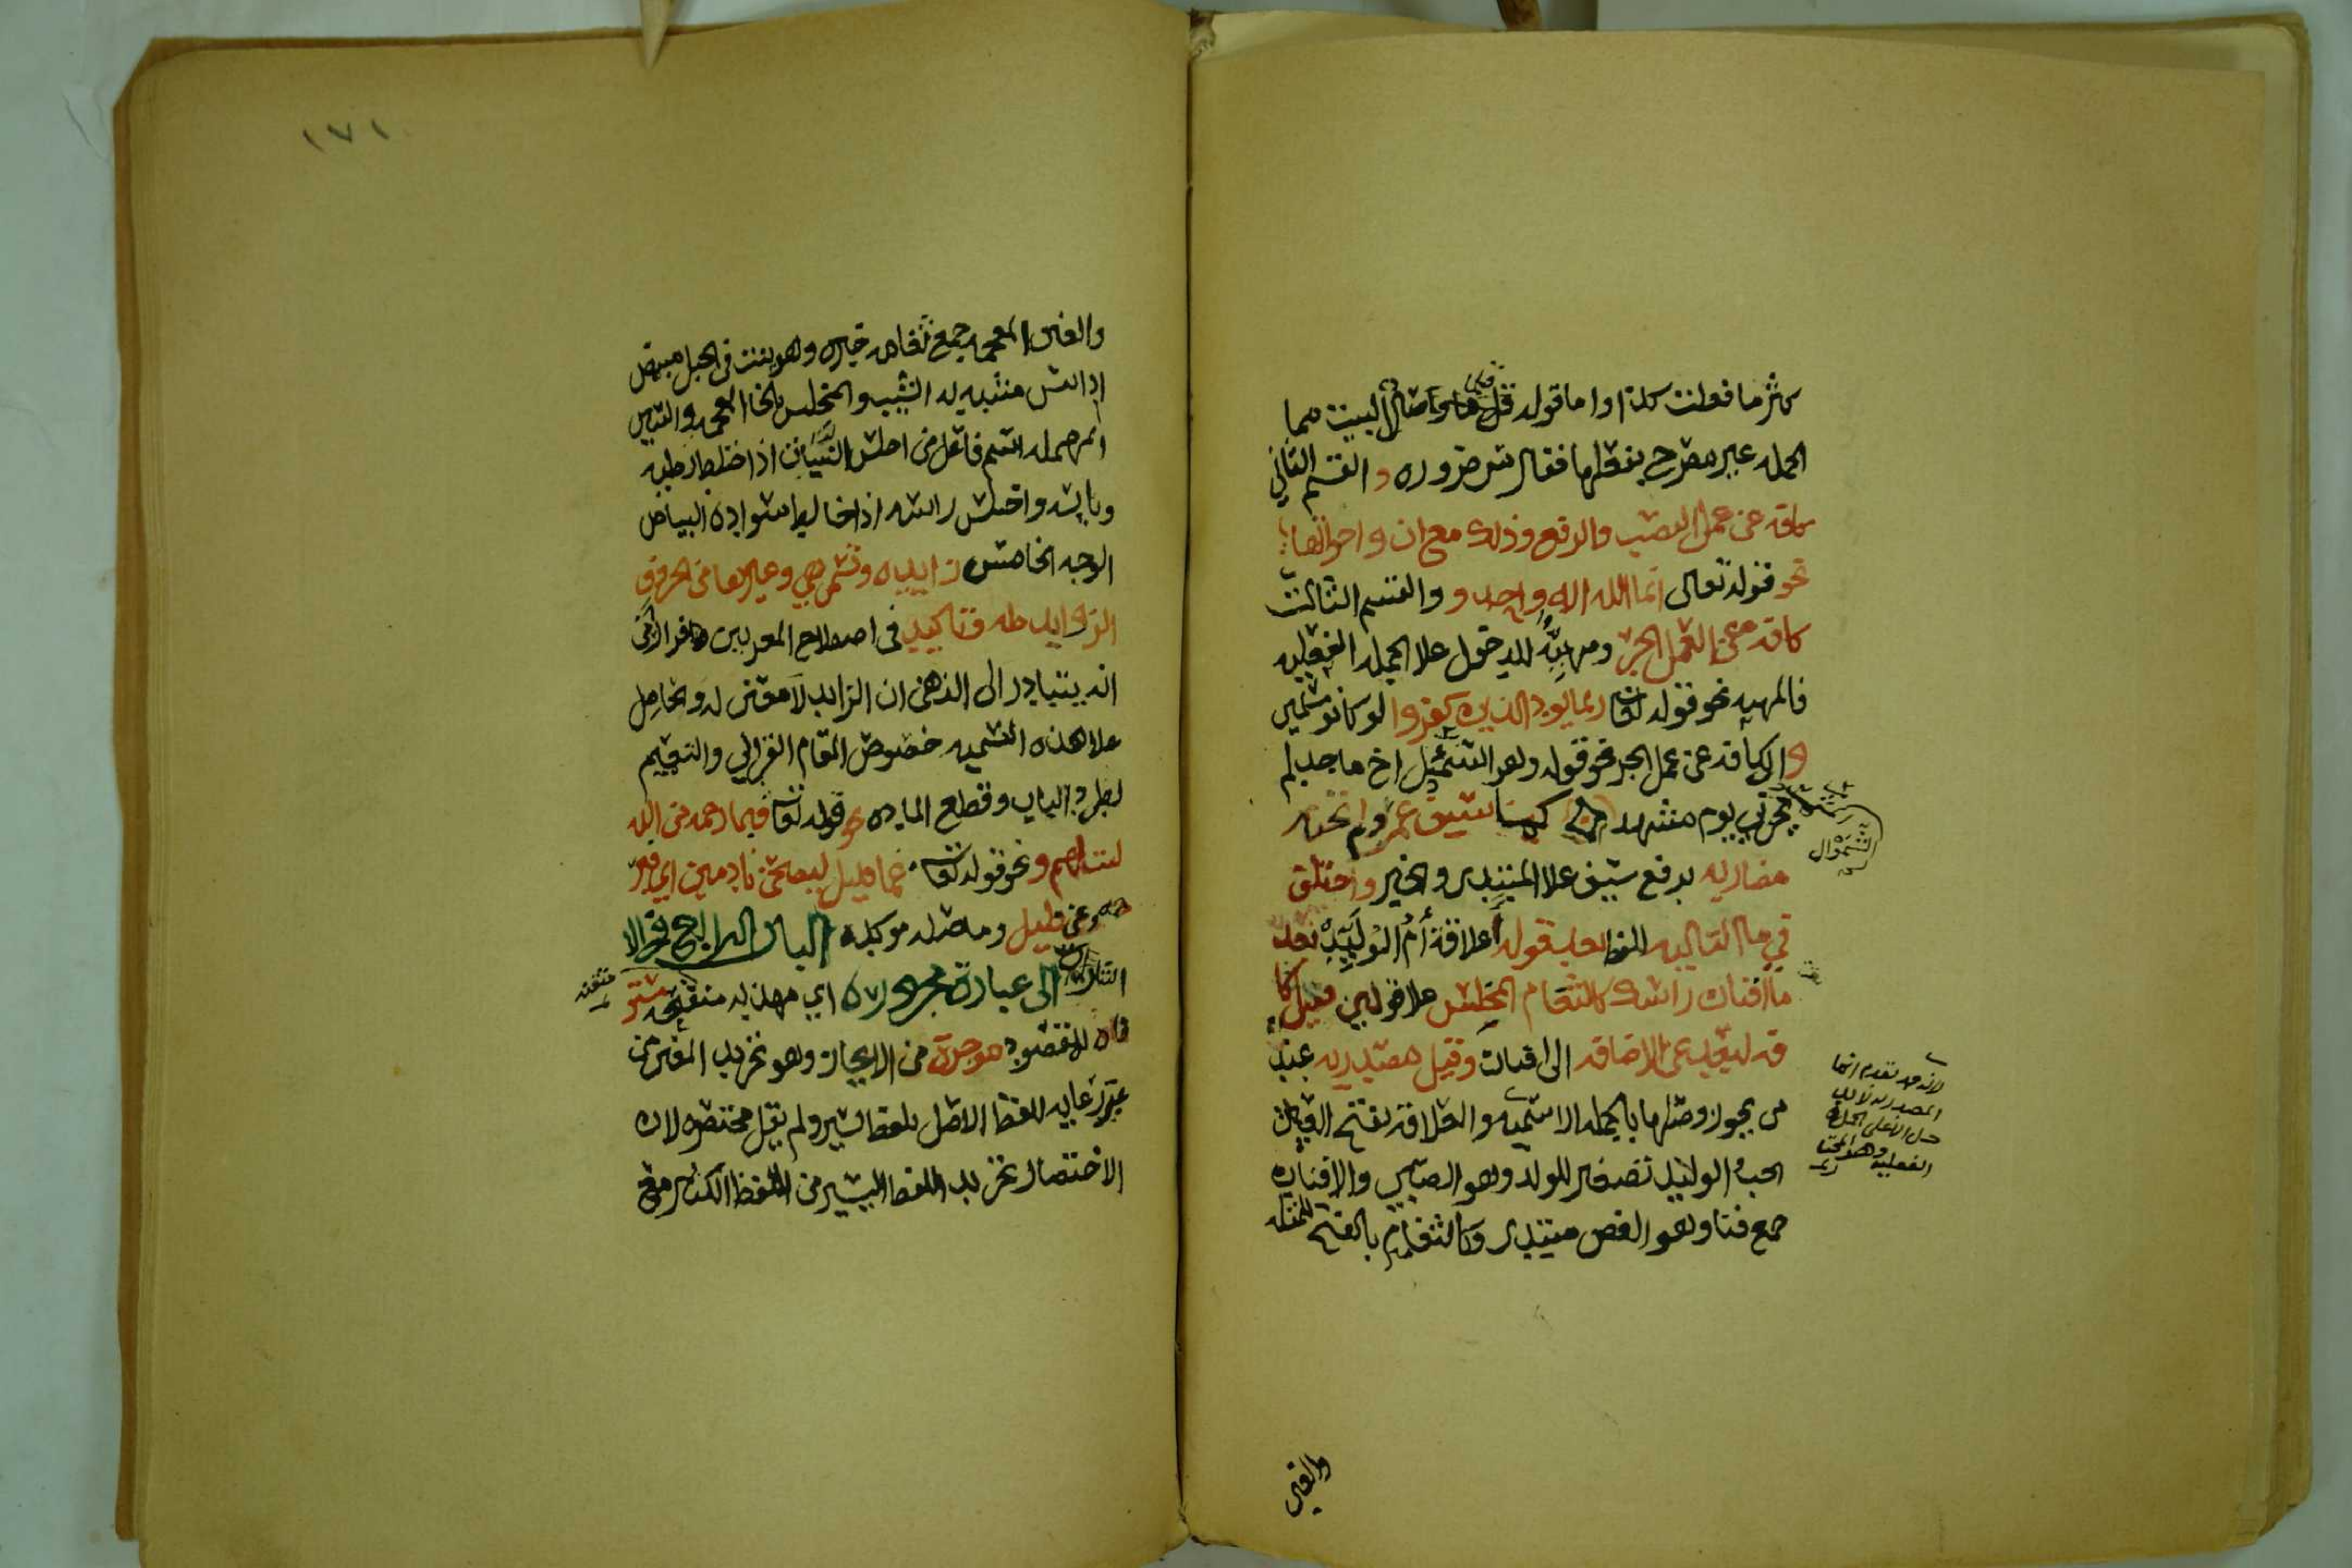 كثر ما فعلت كذا واما قوله قل وصال البيت مما
الجمله غير مصرح بفعلها فقال س ضروره والقسم الثاني
كافه عن عمل النصب والرفع وذلك مع ان واخواتها
نحو قوله تعالى انما الله اله واحد و والقسم الثالث
كافه عن العمل الجر ومهيئه للدخول علا الجمله الفعليه
فالمهيه نحو قوله تعا ربما يود الذين كفروا لو كانو مسلمين
والكافه عن عمل الجر نحو قوله وهو اخ ماجد لم
يخزني يوم مشهد كما سيف عمرو لم تخنه
مضاربه برفع سيف علا المبتدى والخبر واختلق
في ما التاليه بعد قوله أعلاقة أم الوليد بعد
ما افنان راسك كالثغام المخلس علا قولين فقيل كا
فه لبعد عن الاضافه الى افنان وقيل مصدريه عند
من يجوز وصلها بالجمله الاسميه والعلاقه بفتح العين
الحب والوليد تصغير للولد وهو الصبي والافنان
جمع فنا وهو الغصن مبتدى وكالثغام بالفتح للمثلثه
السموأل
لانه قد تقدم انها
المصدريه لا تد
خل الا على الجملة
الفعليه وهو المختا
ر
والغين
١٧١
والغين المعجمه جمع ثغامه خبره وهو ينبت في الجبل مبيض
اذا يبس منتبه به الشيب والمخلس بالخا المعجمه والسين
المهمله اسم فاعل من اخلس النبات اذا اختلط رطبه
ويابسه واخلس راسه اذا خالط سواده البياض
الوجه الخامس زايده وتسمى هي وغيرها من الحروف
الزوايد صله وتاكيد في اصطلاح المعربين
انه يتبادر الى الذهن ان الزايد لا معنى له والحامل
علا هذه التسميه خصوص المقام القرآني والتعميم
لطرد الباب وقطع الماده نحو قوله تعا فبما رحمه من الله
لنت لهم ونحو قوله تعا عما قليل ليصبحن نادمين اي فبر
حمه وعن قليل وما صله موكده الباب الرابع في الا
شارات الى عبارة محررة اي مهذبه منقحه مستو
متقنه
فاه للمقصود موجزة من الايجاز وهو تجريد المعنى من
غير رعايه للفظ الاصل بلفظ يسير ولم يقل مختصره لان
الاختصار تجريد اللفظ اليسير من اللفظ الكثير مع